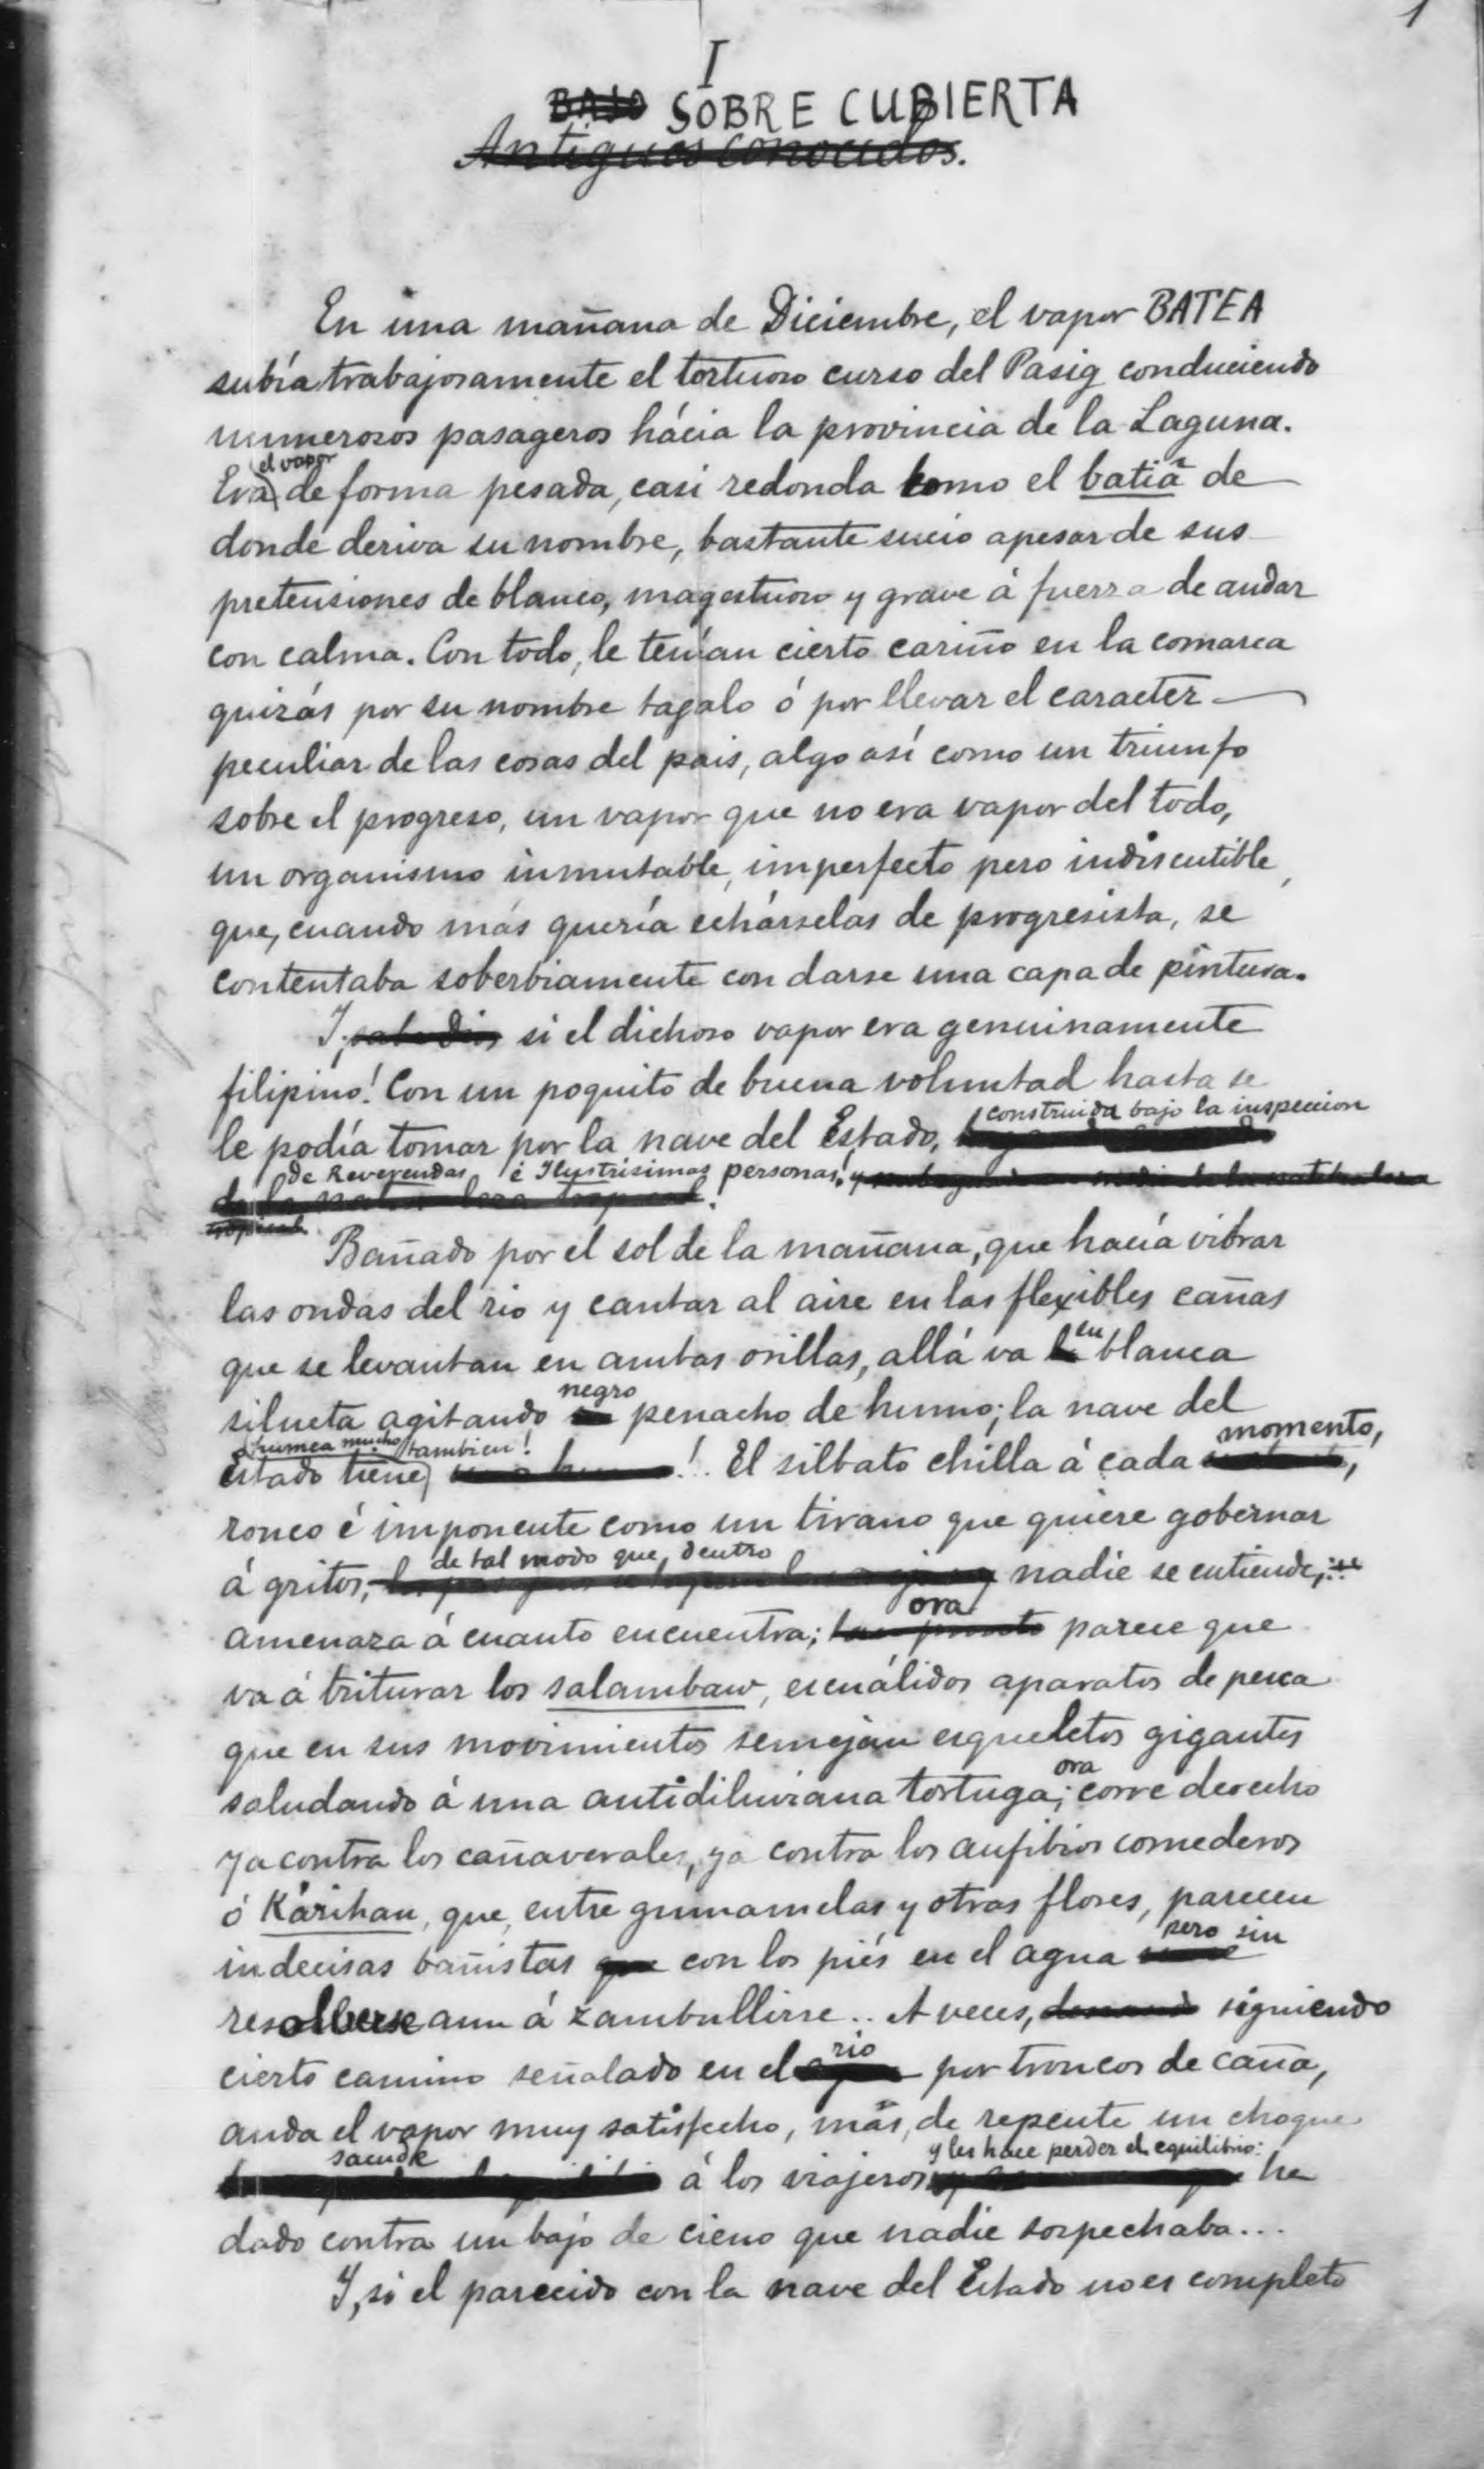 1
I
BAJO SOBRE CUBIERTA
Antiguos conocidos.
En una mañana de Diciembre, el vapor BATEA
subía trabajosamente el tortuoso curso del Pasig conduciendo
numerosos pasageros hácia la provincia de la Laguna.
el vapor
Era de forma pesada, casi redonda como el batiã de
donde deriva su nombre, bastante sucio apesar de sus
pretensiones de blanco, magestuoso y grave á fuerza de andar
con calma. Con todo, le tenían cierto cariño en la comarca
quizás por su nombre tagalo ó por llevar el caracter
peculiar de las cosas del pais, algo así como un triunfo
sobre el progreso, un vapor que no era vapor del todo,
un organismo inmutable, imperfecto pero indiscutible,
que, cuando más quería echárselas de progresista, se
contentaba soberbiamente con darse una capa de pintura.
I, sabe Dios si el dichoso vapor era genuinamente
filipino! Con un poquito de buena voluntad hasta se
construida bajo la inspeccion
le podía tomar por la nave del Estado,
de Reverendas é Ilustrísimas personas! y
tropical.
Bañado por el sol de la mañana, que hacía vibrar
las ondas del rio y cantar al aire en las flexibles cañas
que se levantan en ambas orillas, allá va su blanca
negro
silueta agitando penacho de humo; la nave del
humea mucho tambien! momento,
Estado tiene ! El silbato chilla á cada
ronco é imponente como un tirano que quiere gobernar
de tal modo que, dentro
á gritos, nadie se entiende;
ora
amenaza á cuanto encuentra; parece que
va á triturar los salambaw, escuálidos aparatos de pesca
que en sus movimientos semejan esqueletos gigantes
ora
saludando á una antidiluviana tortuga; corre derecho
ya contra los cañaverales, ya contra los anfibios comederos
ó Kárihan, que, entre gumamelas y otras flores, parecen
pero sin
indecisas bañistas que con los piés en el agua
resolverse aun á zambullirse .. A veces, siguiendo
rio
cierto camino señalado en el por troncos de caña,
anda el vapor muy satisfecho, más, de repente un choque
sacude y les hace perder el equilibrio:
á los viajeros ha
dado contra un bajo de cieno que nadie sospechaba...
I, si el parecido con la nave del Estado no es completo